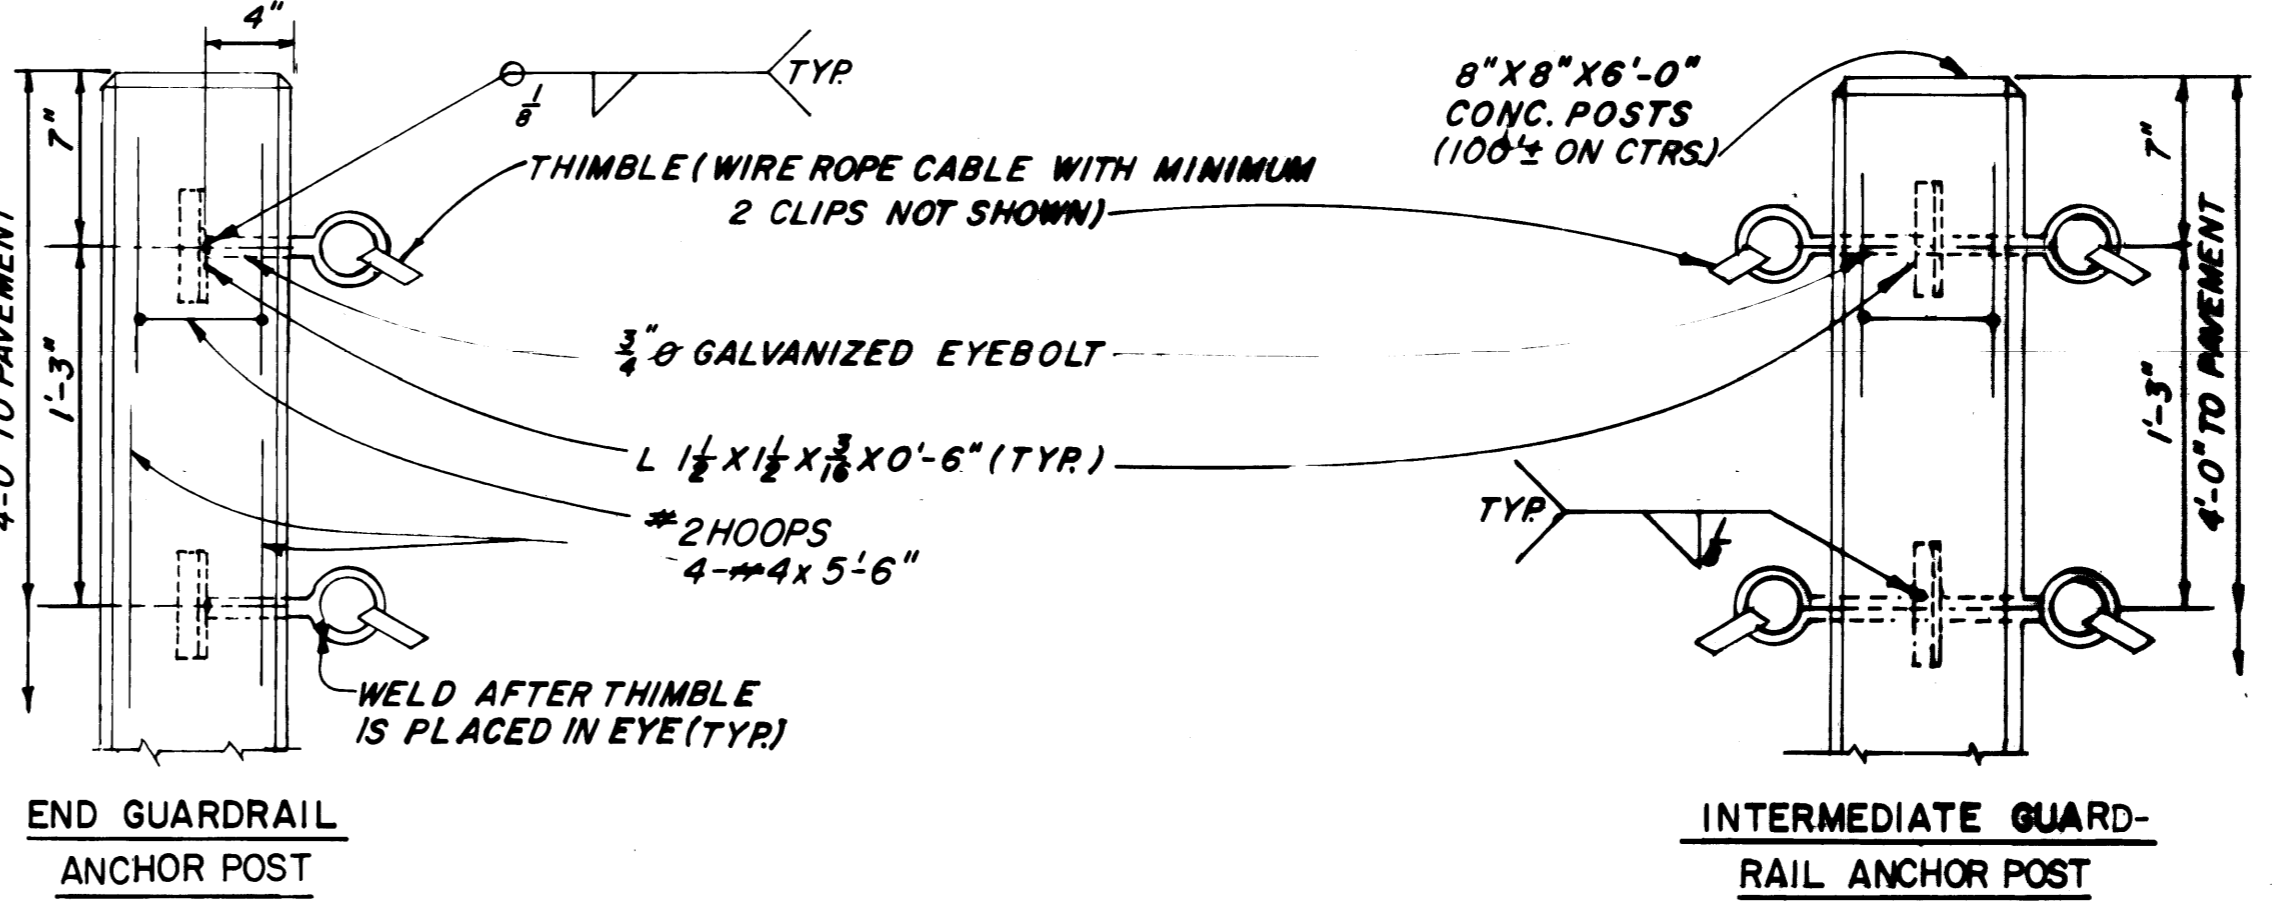 4"
7"
1'-3"
4'-0" TO PAVEMENT
1/8
TYP.
THIMBLE (WIRE ROPE CABLE WITH MINIMUM
2 CLIPS NOT SHOWN)
3/4" Ø GALVANIZED EYEBOLT
L 1 1/2 X 1 1/2 X 3/16 X 0'-6" (TYP.)
#2 HOOPS
4-#4 x 5'-6"
WELD AFTER THIMBLE
IS PLACED IN EYE (TYP.)
END GUARDRAIL
ANCHOR POST
8" X 8" X 6'-0"
CONC. POSTS
(100'± ON CTRS.)
TYP.
7"
1'-3"
4'-0" TO PAVEMENT
INTERMEDIATE GUARD-
RAIL ANCHOR POST